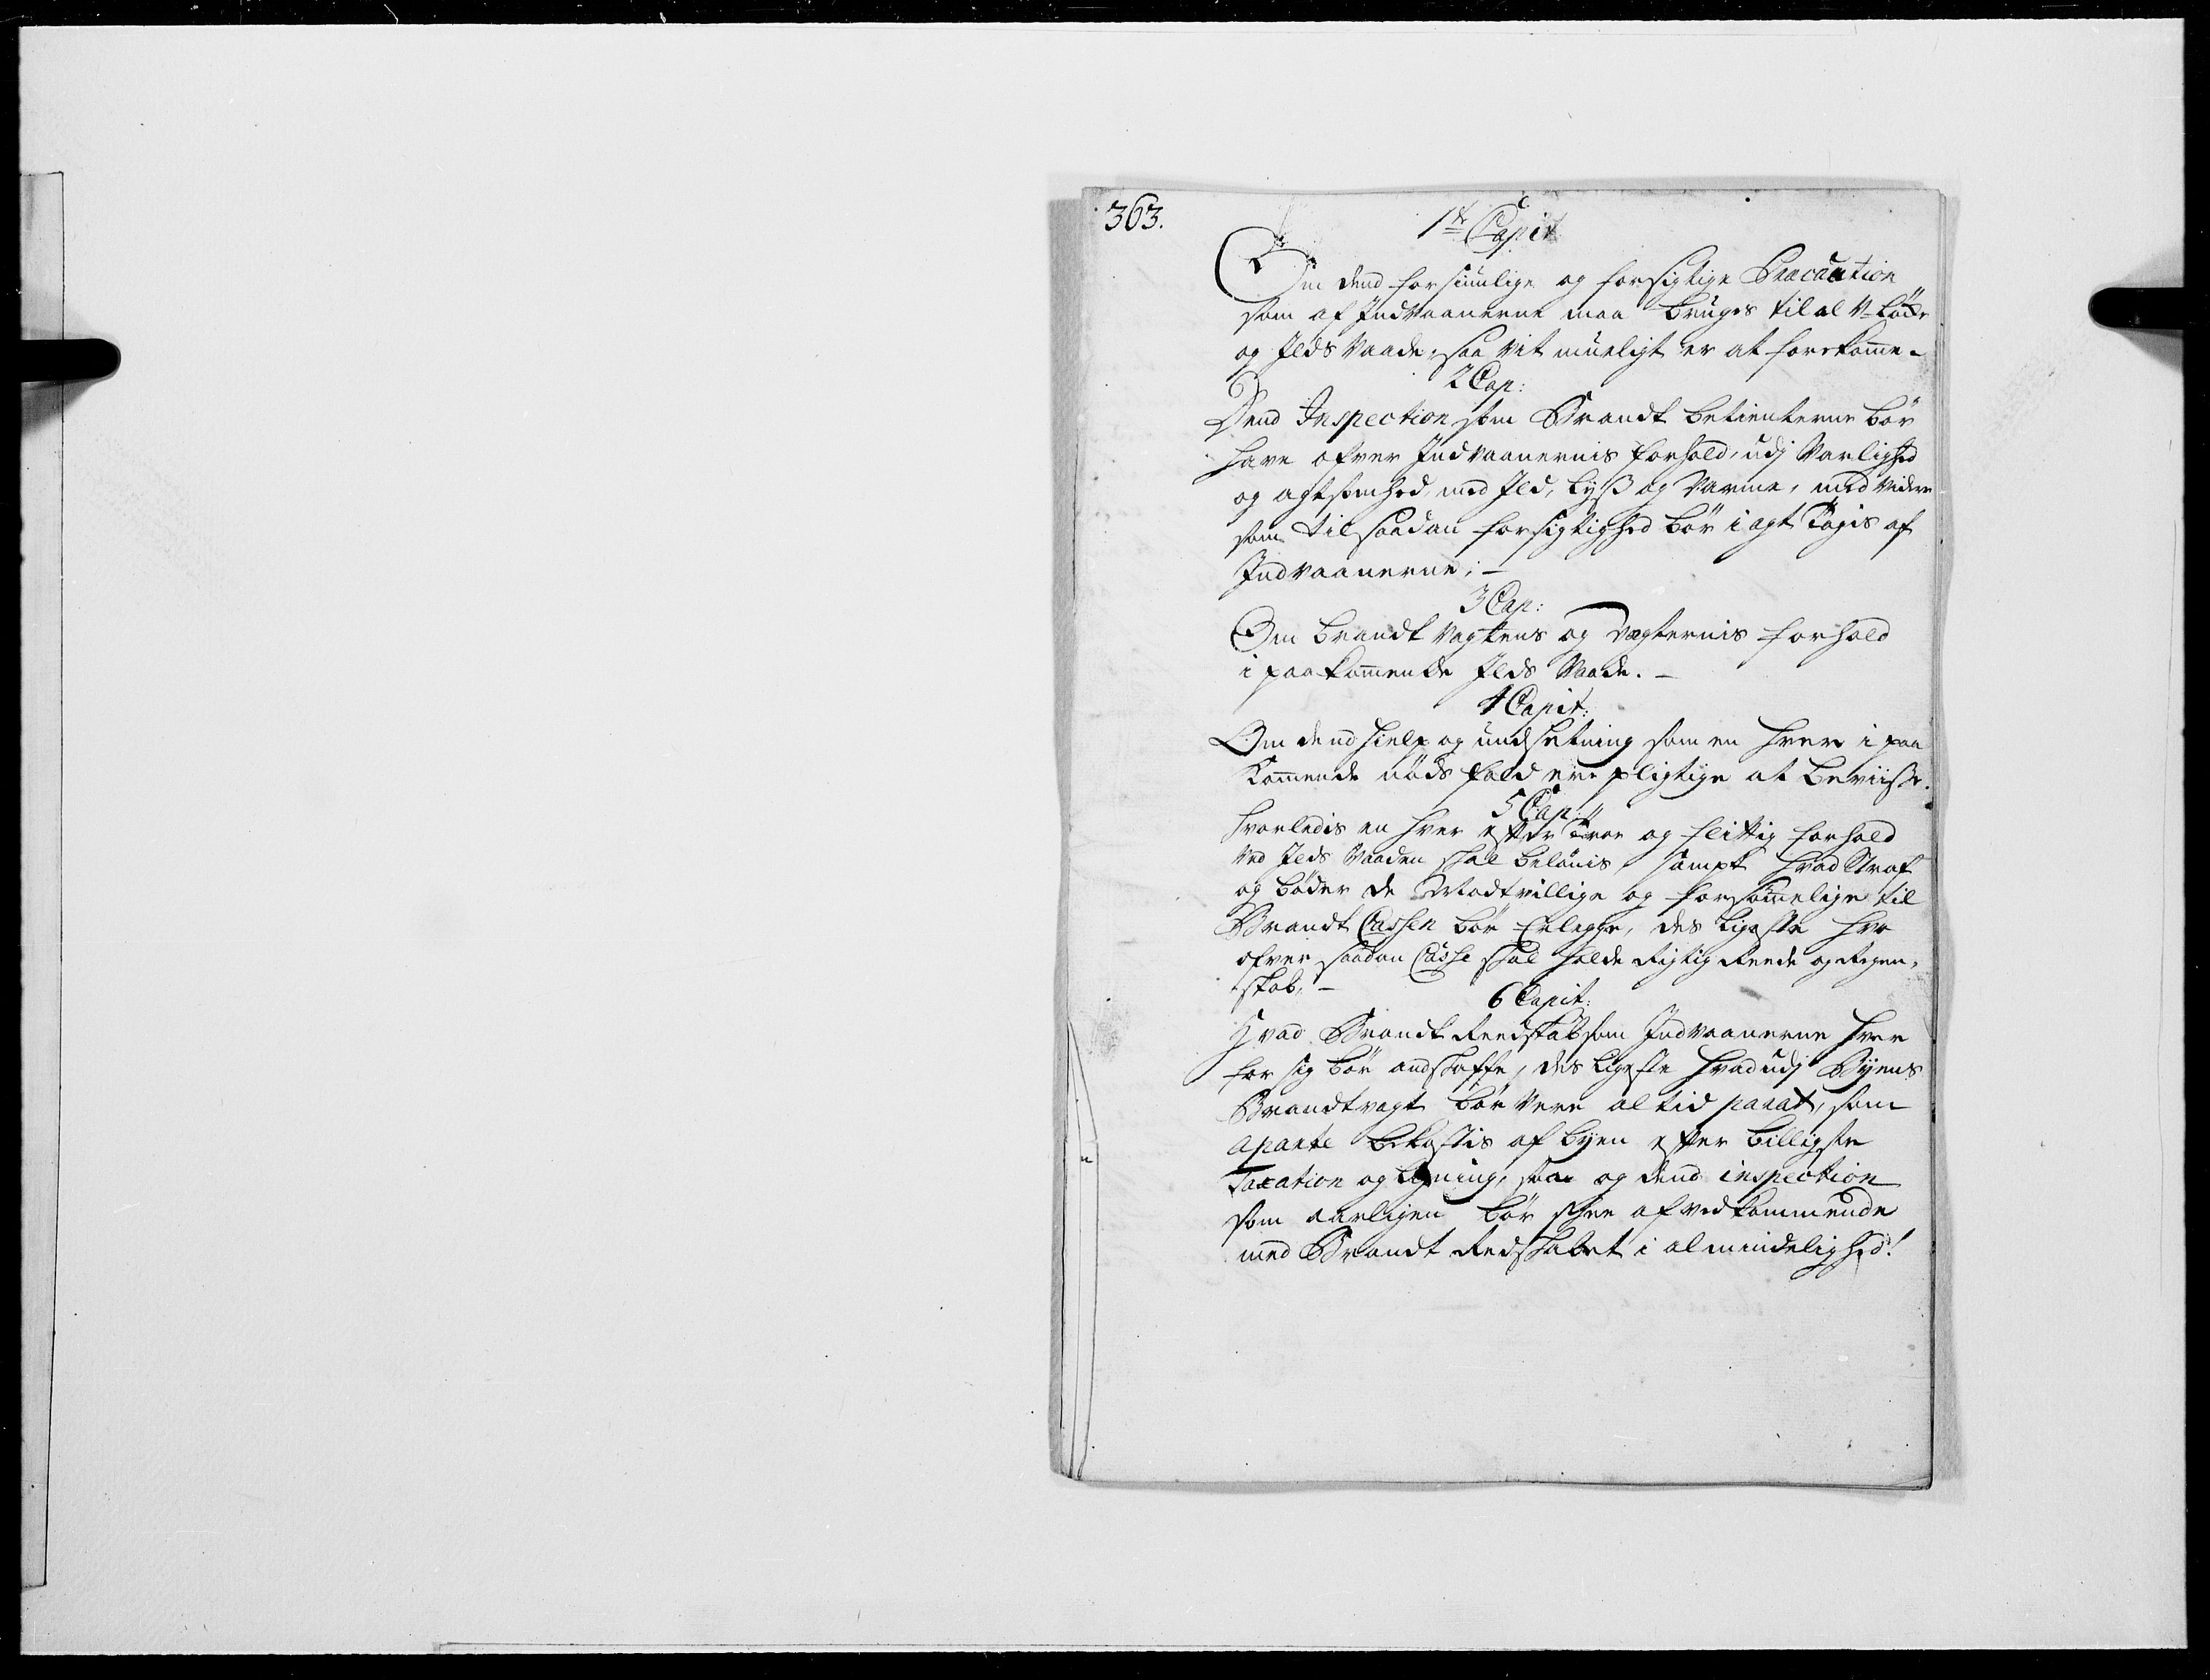 363.
1te Capit
Om dend forsiunlige og forsigtige Præcaution
som af Indvaanerne maa bruges til al
og Ilds Vaade, saa vit mueligt er at forekomme.
2 Cap:
Dend Inspection som Brandt betienterne bör
have ofver Indvaanernis forhold, udj Varlighed
og agtsomhed, med Ild, Lyß og Varme, med videre
som til saadan forsigtighed bör i agt tagis af
Indvaanerne; -
3 Cap:
Om brandt vagtens og vægternis forhold
i paakommende Ilds Vaade. -
4 Capit:
Om dend hielp og undsetning som en hver i paa
kommende nöds fald ere pligtige at beviise.
5 Cap:
Hvorledis en hver efter troe og flittig forhold
ved Ilds Vaaden skal belönis, sampt hvad Straf
og böder de Modtvillige og forsömmelige til
Brandt Cassen bör Erlegge, des ligeste hvo
ofver saadan Casse skal holde Rigtig Reede og Regen-
skab, -
6 Capit:
Hvad Brandt Reedskab som Indvaanerne hver
for sig bör andskaffe, des ligeste hvad udj Byens
Brandtvagt bör være altid parat, som
aparte bekostis af byen efter billigste
Taxation og ligning, saa og dend inspection
som aarligen bör skee af vedkommende
med Brandt Redskabet i almindelighed!